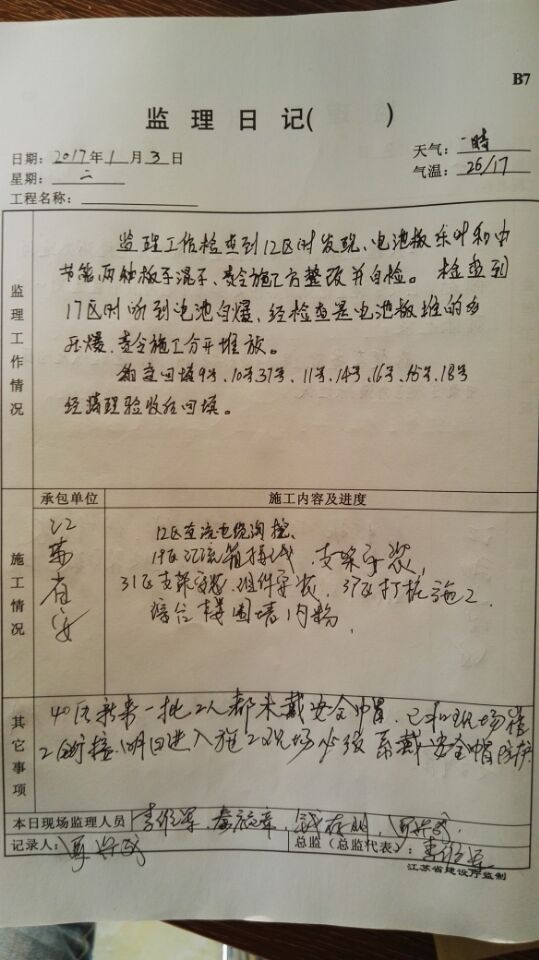 B7
监 理 日 记( )
日期: 2017年1月3日
天气: 晴
星期: 二
气温: 26/17
工程名称:
监理工作情况
监理工作检查到12区时发现、电池板乐叶和中
节能两种板子混子、责令施工方整改并自检。检查到
17区时听到电池自爆、经检查是电池板堆的
压爆、责令施工分开堆放。
回填9#、10#37#、11#、14#、16#、15#、18#
经监理验收后回填。
施工情况
承包单位
施工内容及进度
江苏省安
12区直流电缆沟挖、
19区汇流箱接线、支架安装、
31区支架安装、组件安装、37区打桩施工
综合楼围墙内粉、
其它事项
40区新来一批工人都未戴安全帽、已和现场
明日进入施工现场必须系戴安全帽
本日现场监理人员
记录人:
总监(总监代表):
江苏省建设厅监制